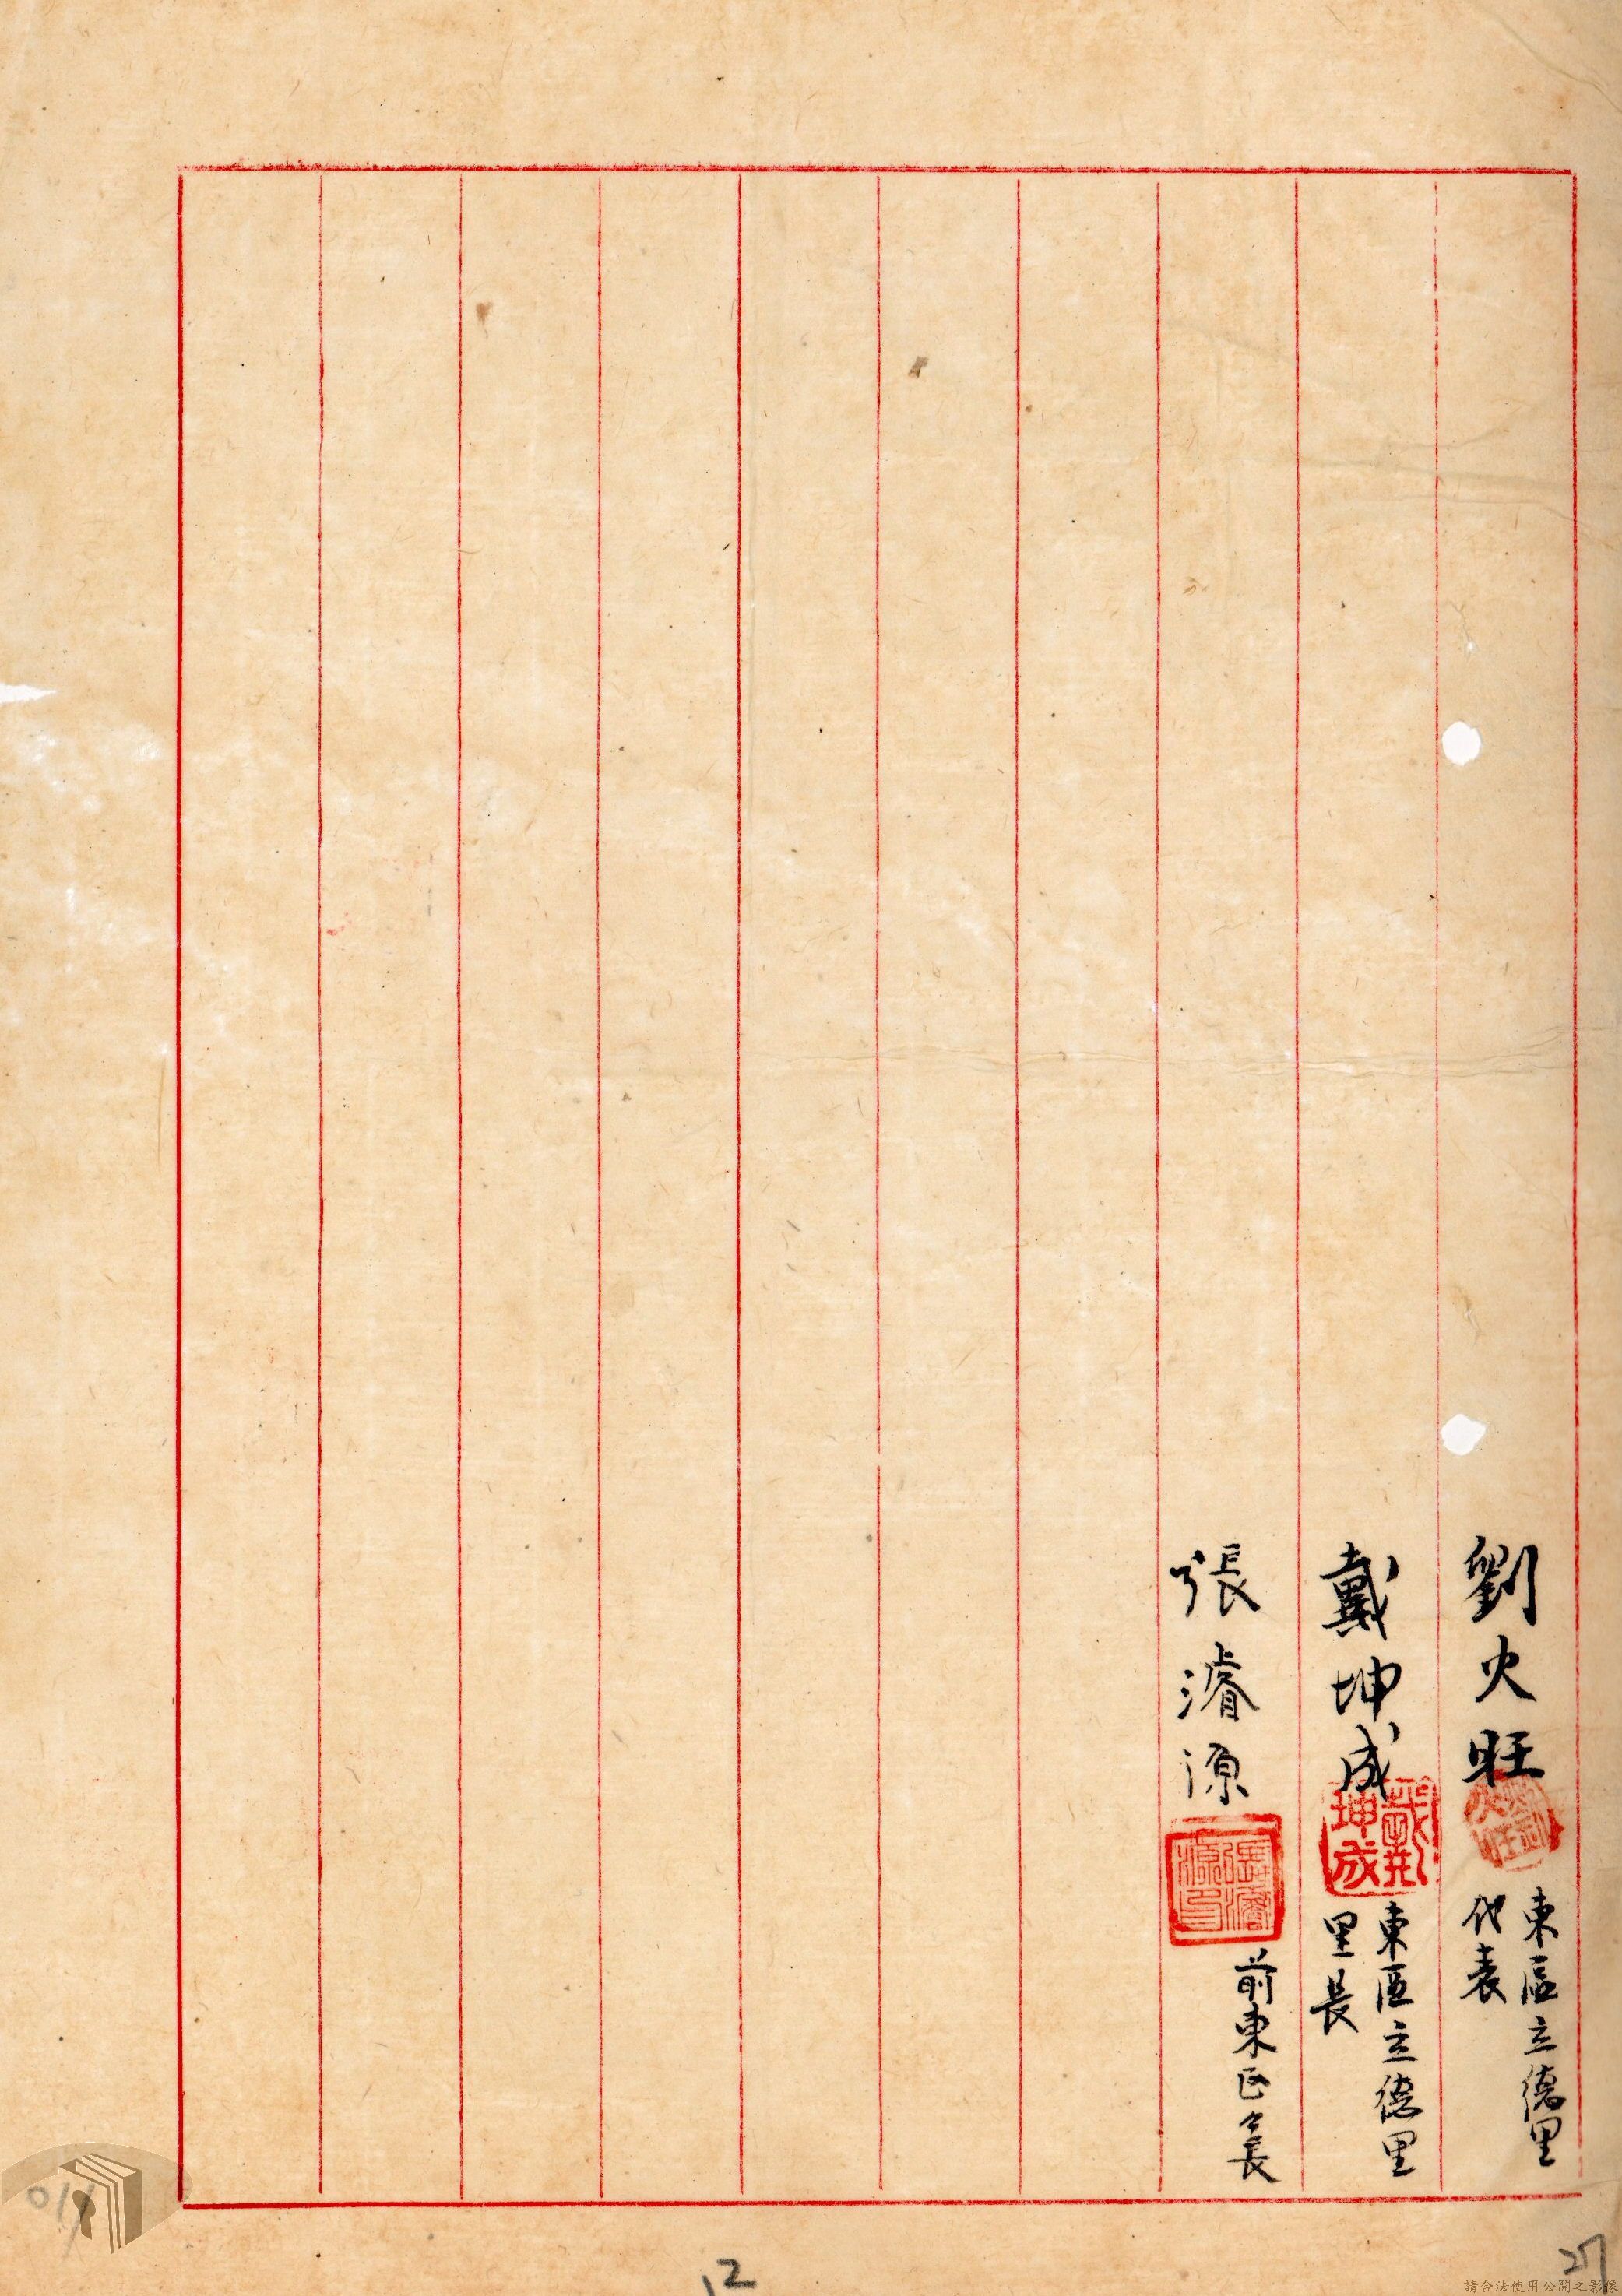 劉火旺
東區立德里
代表
戴坤成
戴坤成
東區立德里
里長
張濬源
張濬源印
前東區々長
12
27
請合法使用公開之影像